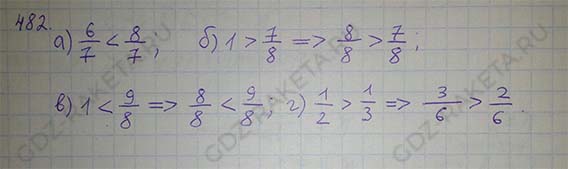 482.
а) 6/7 < 8/7; б) 1 > 7/8 => 8/8 > 7/8;
в) 1 < 9/8 => 8/8 < 9/8; г) 1/2 > 1/3 => 3/6 > 2/6.
GDZ-RAKETA.RU
GDZ-RAKETA.RU
GDZ-RAKETA.RU